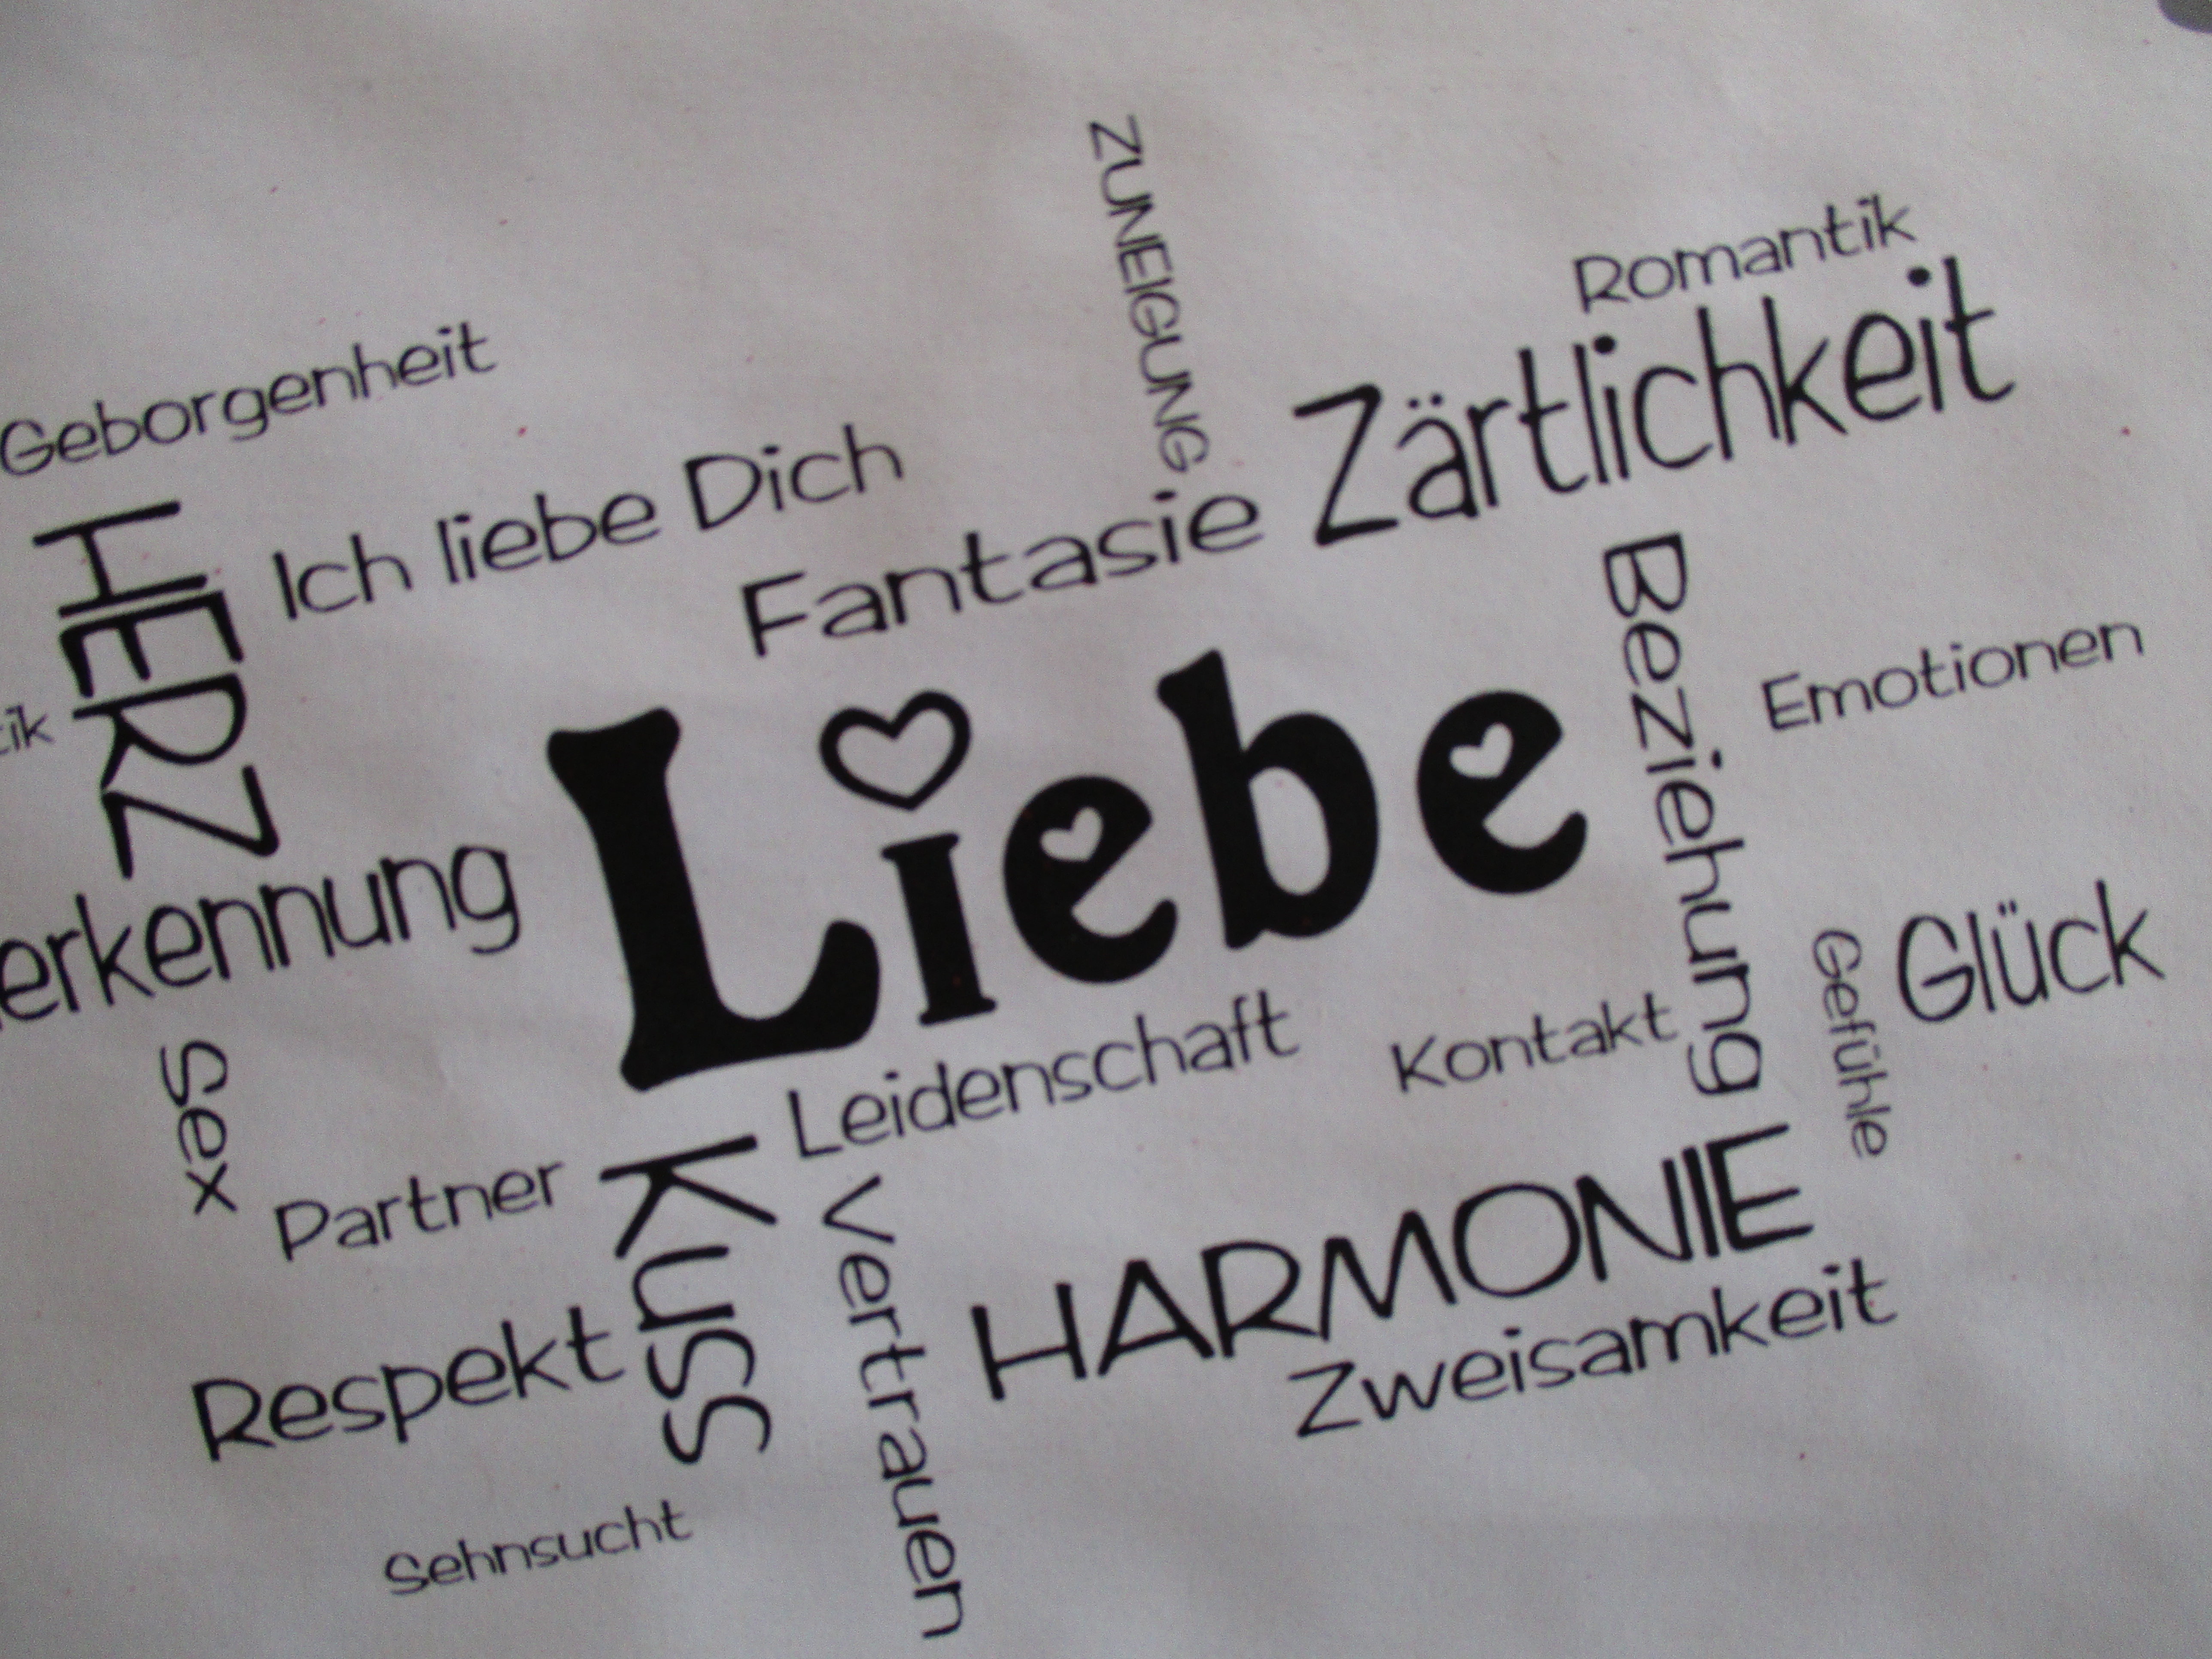 ZUNEIGUNG
Romantik
Zärtlichkeit
Geborgenheit
Ich liebe Dich
Fantasie
HERZ
Beziehung
Emotionen
tik
Liebe
erkennung
Glück
Gefühle
Leidenschaft
Kontakt
Sex
Partner
Kuss
Vertrauen
HARMONIE
Zweisamkeit
Respekt
Sehnsucht